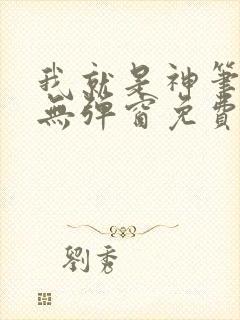 我就是神筆
無彈窗免費
劉秀